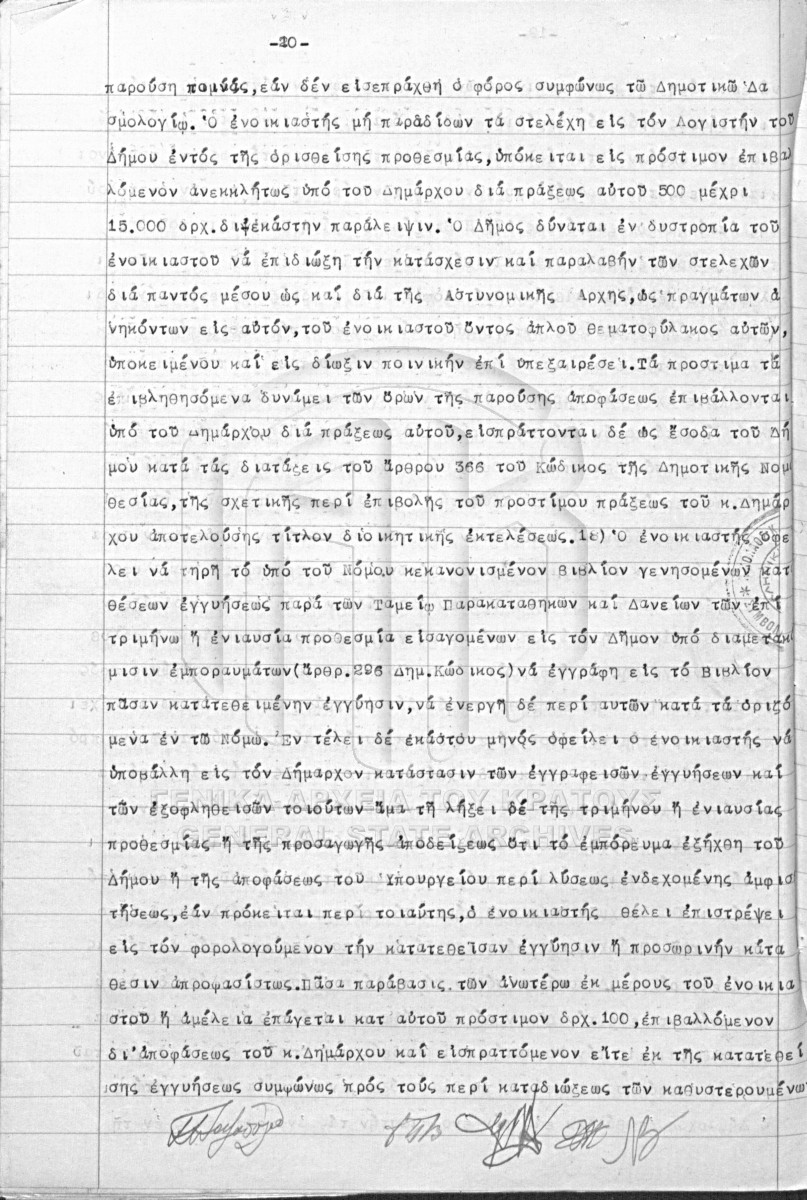 -20-
παρούση ποινάς,εάν δέν εἰσεπράχθη ὁ φόρος συμφώνως τῶ Δημοτικῶ Δα
σμολογίῳ.Ὁ ἐνοικιαστής μή παραδίδων τά στελέχη εἰς τόν Λογιστήν τοῦ
Δήμου ἐντός τῆς ὁρισθείσης προθεσμίας,ὑπόκειται εἰς πρόστιμον ἐπιβαλ
λόμενον ἀνεκκλήτως ὑπό τοῦ Δημάρχου διά πράξεως αὐτοῦ 500 μέχρι
15.000 δρχ.δι'ἑκάστην παράλειψιν.Ὁ Δῆμος δύναται ἐν δυστροπία τοῦ
ἐνοικιαστοῦ νά ἐπιδιώξη τήν κατάσχεσιν καί παραλαβήν τῶν στελεχῶν
διά παντός μέσου ὡς καί διά τῆς Ἀστυνομικῆς Ἀρχῆς,ὡς πραγμάτων ἀ
νηκόντων εἰς αὐτόν,τοῦ ἐνοικιαστοῦ ὄντος ἁπλοῦ θεματοφύλακος αὐτῶν,
ὑποκειμένου καί εἰς δίωξιν ποινικήν ἐπί ὑπεξαιρέσει.Τά πρόστιμα τά
ἐπιβληθησόμενα δυνάμει τῶν ὅρων τῆς παρούσης ἀποφάσεως ἐπιβάλλονται
ὑπό τοῦ Δημάρχου διά πράξεως αὐτοῦ,εἰσπράττονται δέ ὡς ἔσοδα τοῦ Δή
μου κατά τάς διατάξεις τοῦ ἄρθρου 366 τοῦ Κώδικος τῆς Δημοτικῆς Νομο
θεσίας,τῆς σχετικῆς περί ἐπιβολῆς τοῦ προστίμου πράξεως τοῦ κ.Δημάρ
χου ἀποτελούσης τίτλον διοικητικῆς ἐκτελέσεως.18)Ὁ ἐνοικιαστής ὀφε
λει νά τηρῆ τό ὑπό τοῦ Νόμου κεκανονισμένον βιβλίον γενησομένων κατ
θέσεων ἐγγυήσεως παρά τῶν Ταμείῳ Παρακαταθηκῶν καί Δανείων τῶν ἐπί
τριμήνω ἤ ἐνιαυσία προθεσμία εἰσαγομένων εἰς τόν Δῆμον ὑπό διαμετακ
μισιν ἐμπορευμάτων(ἄρθρ.296 Δημ.Κώδικος)νά ἐγγράφη εἰς τό Βιβλίον
πᾶσαν κατατεθειμένην ἐγγύησιν,νά ἐνεργῆ δέ περί αὐτῶν κατά τά ὁριζό
μενα ἐν τῶ Νόμῳ.Ἐν τέλει δέ ἑκάστου μηνός ὀφείλει ὁ ἐνοικιαστής νά
ὑποβάλλη εἰς τόν Δήμαρχον κατάστασιν τῶν ἐγγραφεισῶν ἐγγυήσεων καί
τῶν ἐξοφληθεισῶν τοιούτων ἅμα τῆ λήξει δέ τῆς τριμήνου ἤ ἐνιαυσίας
προθεσμίας ἤ τῆς προσαγωγῆς ἀποδείξεως ὅτι τό ἐμπόρευμα ἐξήχθη τοῦ
Δήμου ἤ τῆς ἀποφάσεως τοῦ Ὑπουργείου περί λύσεως ἐνδεχομένης ἀμφισ
τήσεως,ἐάν πρόκειται περί τοιαύτης,ὁ ἐνοικιαστής θέλει ἐπιστρέψει
εἰς τόν φορολογούμενον τήν κατατεθεῖσαν ἐγγύησιν ἤ προσωρινήν κατα
θεσιν ἀπροφασίστως.Πᾶσα παράβασις τῶν ἀνωτέρω ἐκ μέρους τοῦ ἐνοικια
στοῦ ἤ ἀμέλεια ἐπάγεται κατ αὐτοῦ πρόστιμον δρχ.100,ἐπιβαλλόμενον
δι'ἀποφάσεως τοῦ κ.Δημάρχου καί εἰσπραττόμενον εἴτε ἐκ τῆς κατατεθεί
σης ἐγγυήσεως συμφώνως πρός τούς περί καταδιώξεως τῶν καθυστερουμένω
ΓΕΝΙΚΑ ΑΡΧΕΙΑ ΤΟΥ ΚΡΑΤΟΥΣ
GENERAL STATE ARCHIVES